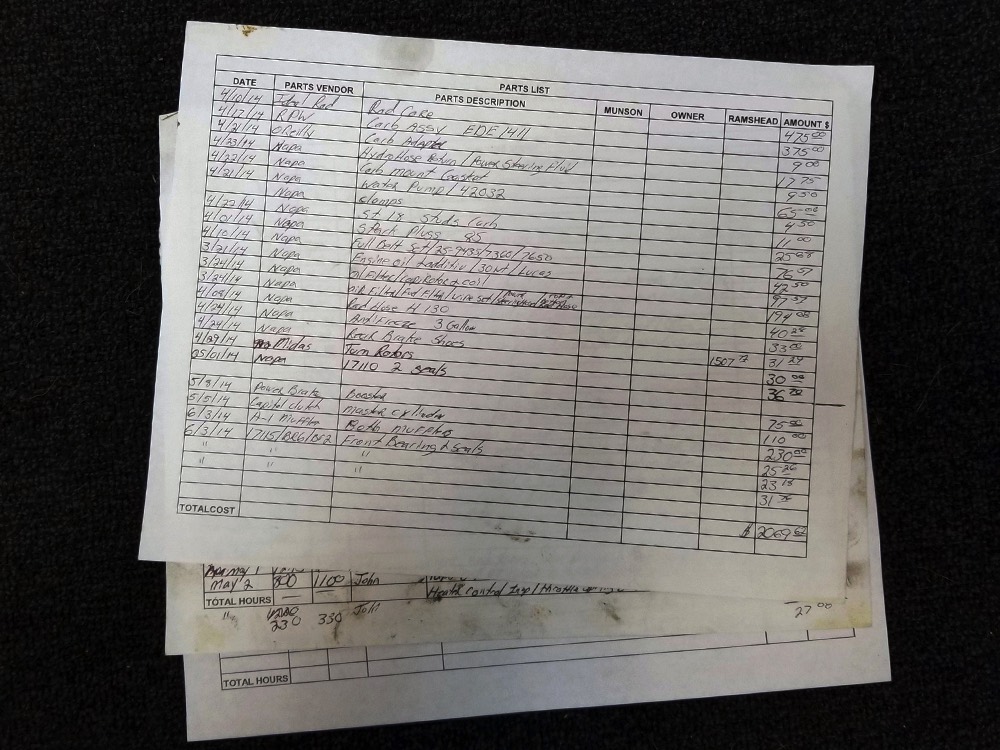 PARTS LIST
DATE PARTS VENDOR PARTS DESCRIPTION MUNSON OWNER RAMSHEAD AMOUNT $
4/10/14 Ideal Rad Rad Core 475 00
4/17/14 RPW Carb Assy EDE 1411 375 00
4/21/14 OReilly Carb Adapter 9 00
4/23/14 Napa Hydro Hose Return / Power Steering Fluid 17 75
4/22/14 Napa Carb Mount Gasket 9 50
4/21/14 Napa Water Pump / 42032 65 00
Napa Clamps 4 50
4/22/14 Napa St. 18 Studs Carb 11 00
4/01/14 Napa Spark Pluss QS 25 68
4/10/14 Napa Full Belt Set / 25-7435/7360/7650 76 57
3/21/14 Napa Engine oil Additiv / 30wt / Lucas 42 50
3/24/14 Napa Oil Filter/cap Rotor & coil 97 57
3/24/14 Napa Air Filter / Fuel Filter / wire set / 194 08
4/08/14 Napa Rad Hose H 130 40 28
4/24/14 Napa Anti Freeze 3 Gallon 33 00
4/24/14 Napa Rear Brake Shoes 1507 72 31 29
4/29/14 Midas Turn Rotors 30 00
05/01/14 Napa 17110 2 seals 36 78
5/3/14 Power Brake Booster 75 00
5/5/14 Capitol Clutch master cylinder 110 00
6/3/14 A-1 Muffler Both mufflers 230 00
6/3/14 17115/BR6/BR2 Front Bearing & Seals 25 26
" " " 23 18
" " " 31 75
TOTAL COST $ 2069 62
may 1
May 2 800 1100 John Heater Control Insp / throttle
TOTAL HOURS
" 1200 John 27 00
230 330
TOTAL HOURS